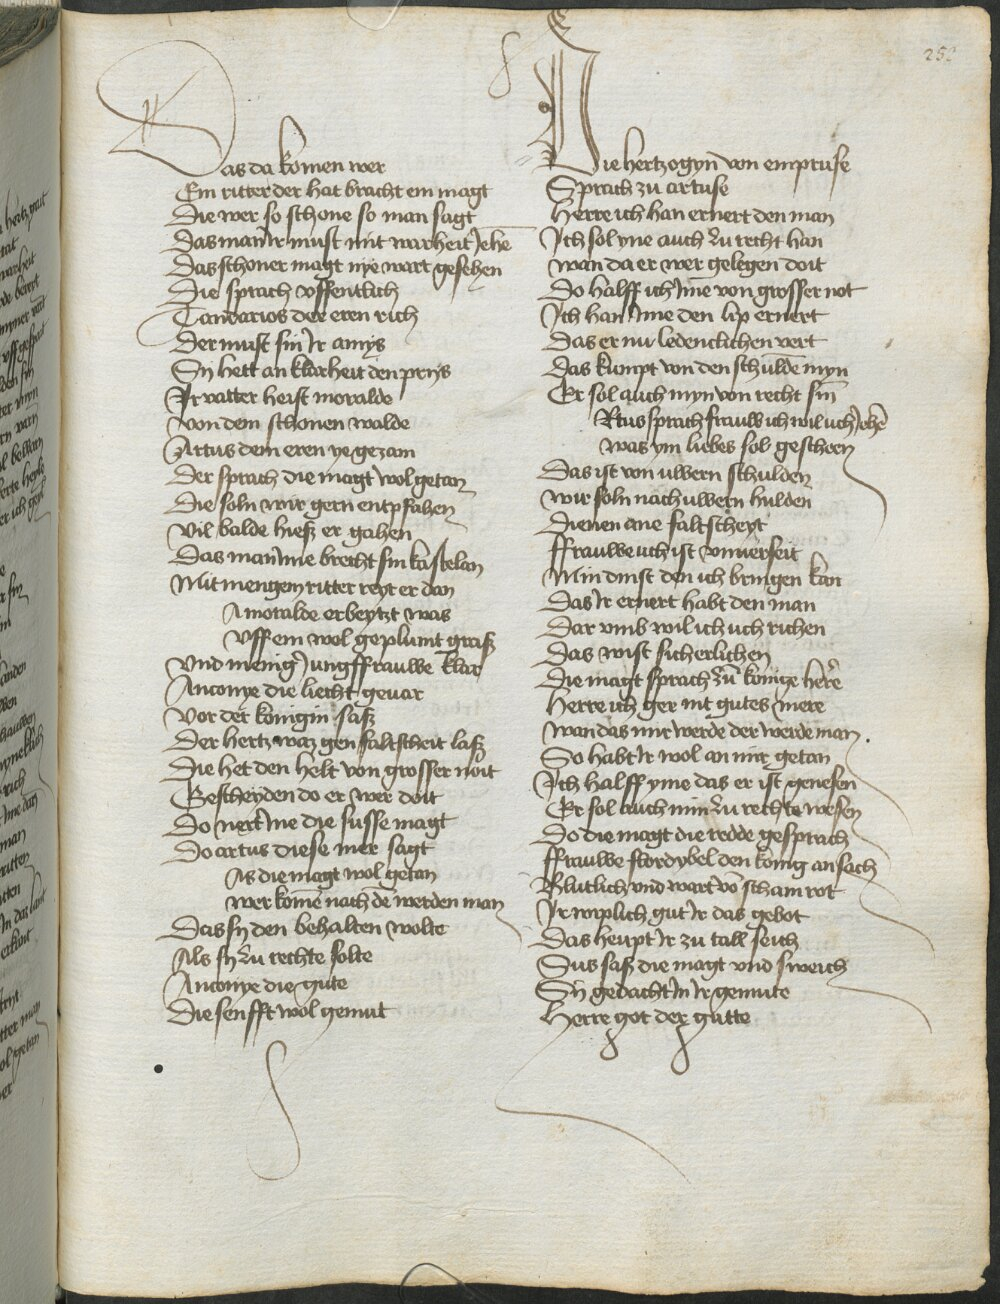 Das da komen wer
Ein ritter der hat bracht ein magt
Die wer so schone so man sagt
Das man ir must mit warheit jehē
Das schoner magt nye wart gesehen
Die sprach offentlich
Tandarios der eren rich
Der must sin ir amys
Sy hett an klarheit den prys
Ir vatter heist moralde
Von dem schonen walde
Artus dem eren ye gezam
Der sprach die magt wol getan
Die soln wir gern entpfahen
Vil balde hieß er gahen
Das man ime brecht sin kastelan
Mit mengem ritter reyt er dan
A moralde erbeytzt was
Uff ein wol geplumt graß
Und menig jungffrauwe klar
Anconye die liecht gevar
Vor der konigin saß
Der hertz waz gen faltscheit laß
Die het den helt von grosser noit
Gescheyden do er wer doit
Do nert ine die susse magt
Do artus diese mer sagt
As die magt wol getan
Wer komē nach dē werden man
Das sy den behalten wolte
Als sy zu rechte solte
Anconye die gute
Die senfft wol gemut
250
Die hertzogyn von empruse
Sprach zu artuse
Herre ich han ernert den man
Ich sol yne auch zu recht han
Wan da er wer gelegen doit
Do halff ich ime von grosser not
Ich han ime den lip ernert
Das er nu ledenclichen vert
Das kumpt von den schulde myn
Er sol auch myn von recht sin
Rtus sprach frauw ich wil uch jehē
Was ym liebes sol gescheen
Das ist von uwern schulden
Wir soln nach uwern hulden
Dienen ane faltscheyt
Ffrauwe uch ist unverseit
Min dinst den ich bringen kan
Das ir ernert habt den man
Dar umb wil ich uch richen
Das wist sicherlichen
Die magt sprach zū konige herē
Herre ich ger nit gutes mere
Wan das mir werde der werde man
So habt ir wol an mir getan
Ich halff yme das er ist genesen
Er sol auch min zu rechte wesen
Do die magt die redde gesprach
Ffrauwe flordybel den konig an sach
Blutlich und wart vō scham rot
Ir wiplich gut ir das gebot
Das heupt ir zu tall seich
Sus saß die magt und sweich
Sy gedacht in ir gemute
Herre got der gutte